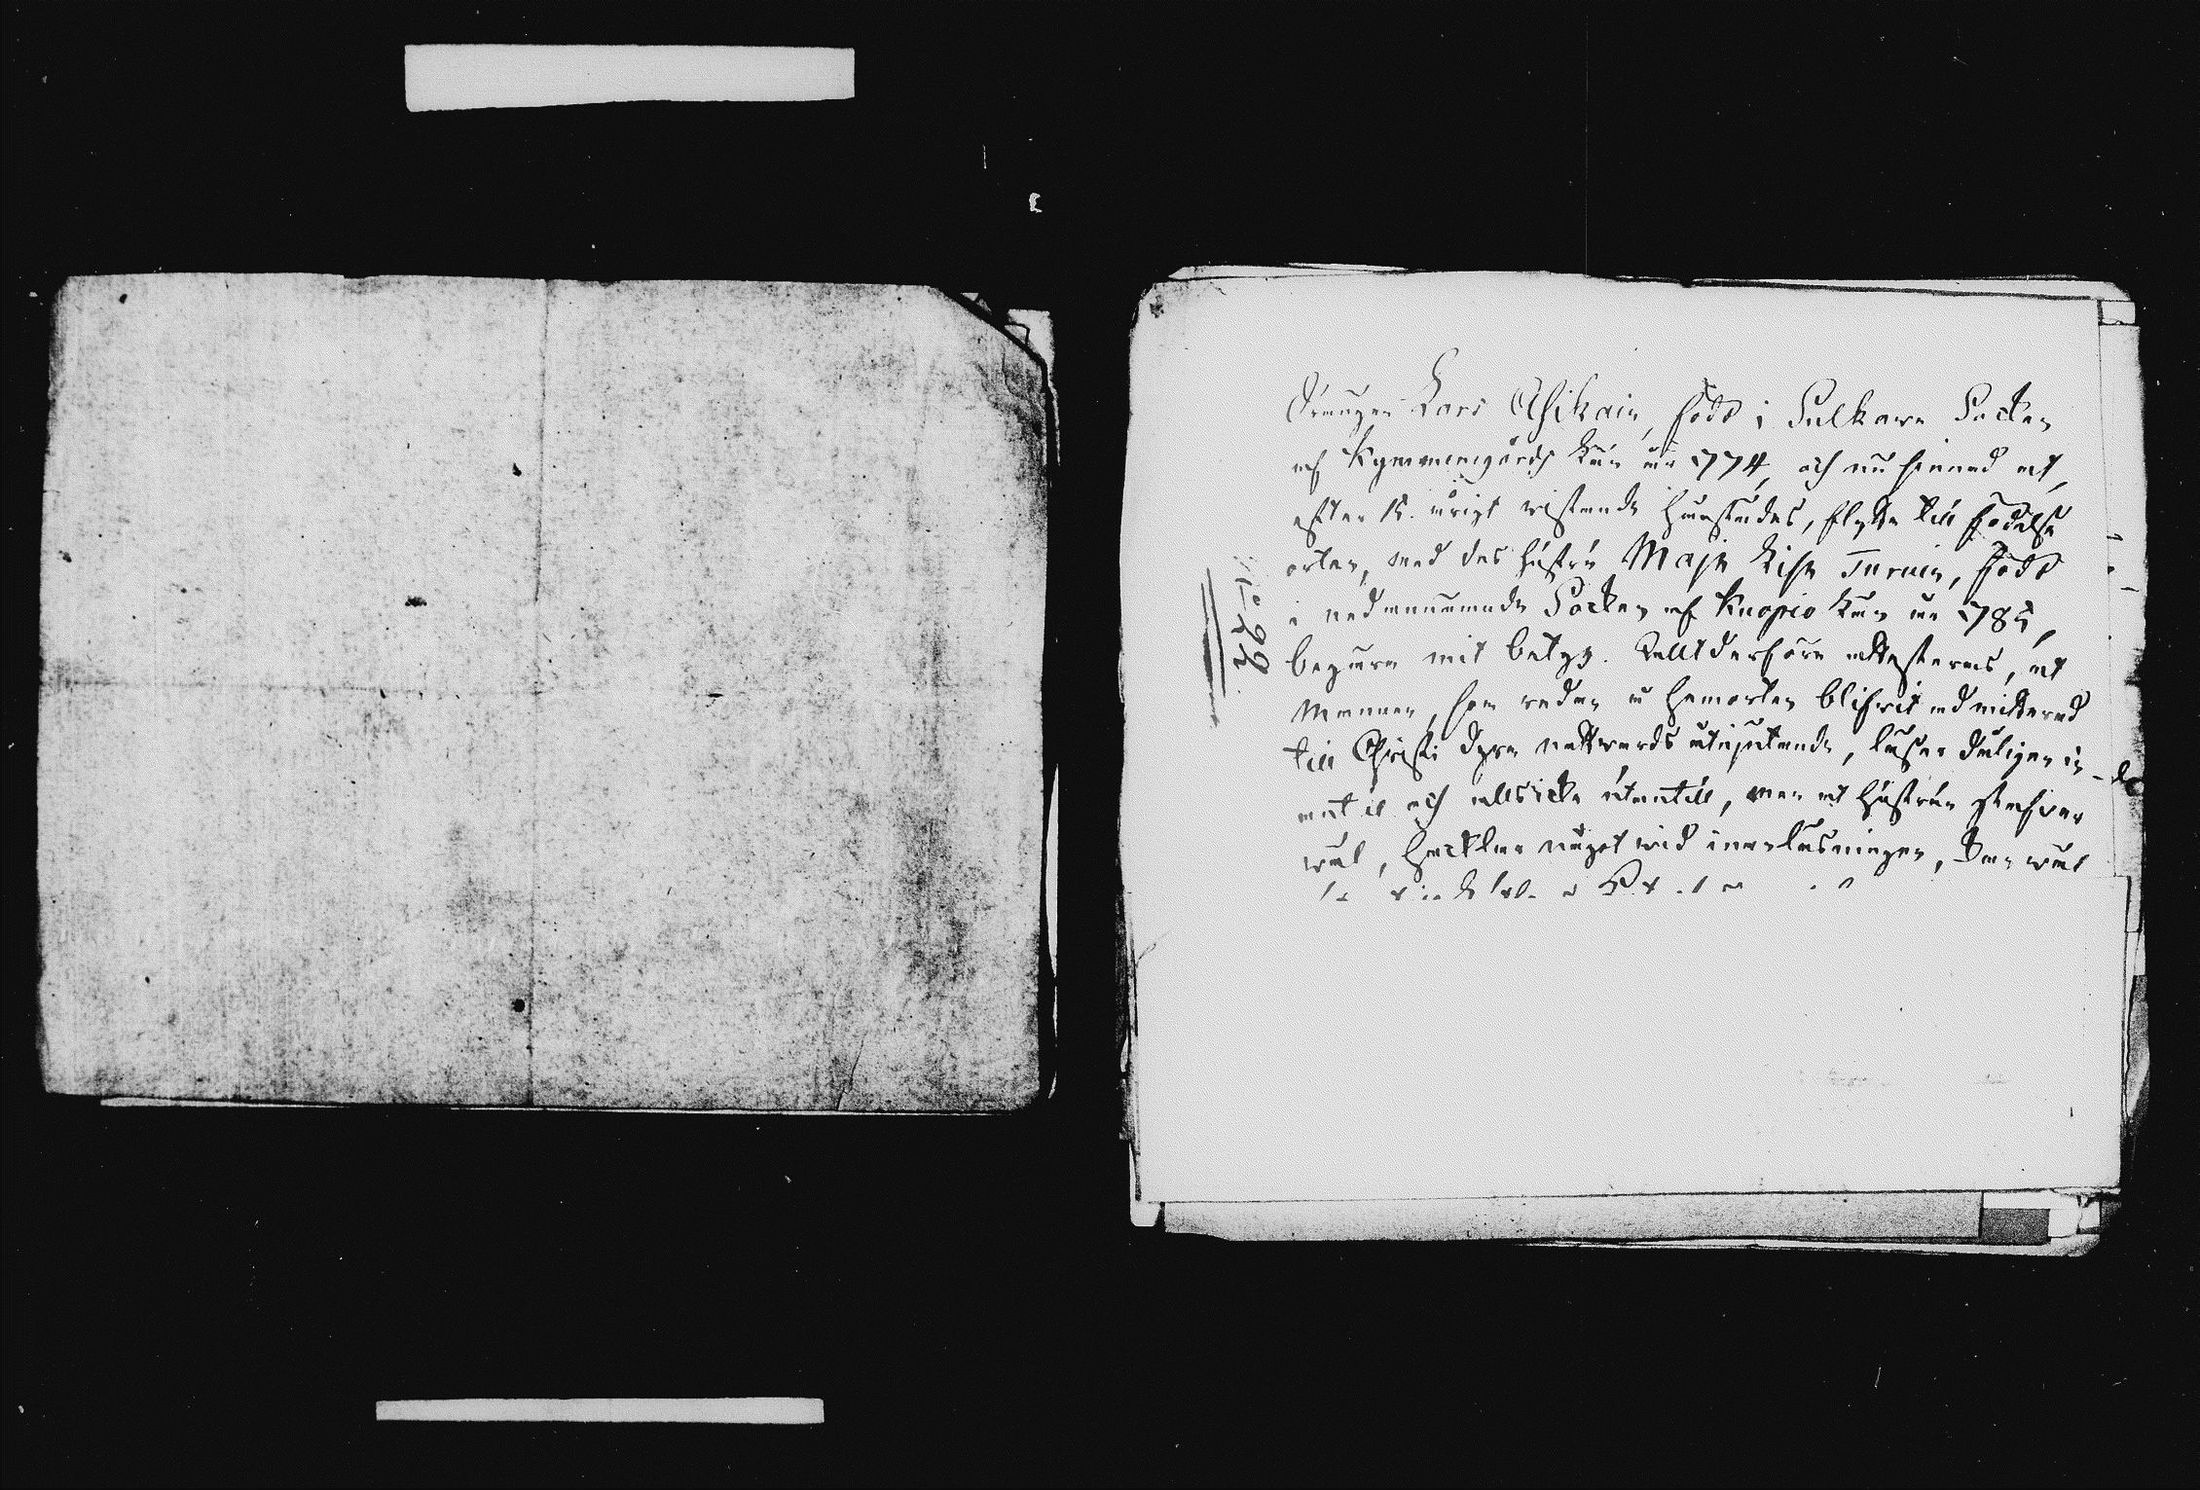 Drängen Lars Asikain, född i Sulkava Socken
af Kymmenegårds Län år 1774, och nu sinnad at,
efter 12. årigt vistande härstädes, flytta till födelse
orten, med des hustru Maja Lisa Turuin, född
i nedannämnde Socken af Kuopio Län år 1785,
begära mit betyg. Altderföre attesteras, at
Mannen, som redan i hemorten blifvit admitterad
till Christi dyra nattvards åtnjutande, läser dåligen in-
nantill och alldsicke utantill, men at hustrun stafvar
väl, hacklar något vid innanläsningen, kan väl
No 29.